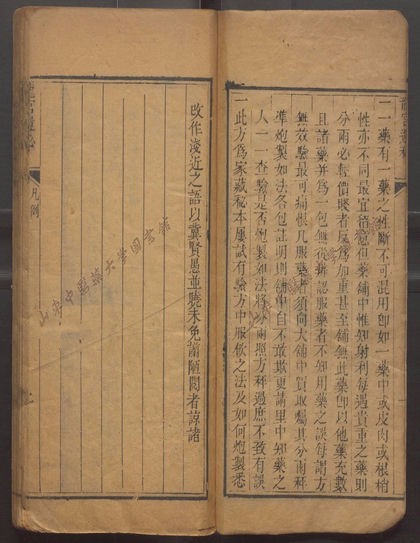 一一藥有一藥之性斷不可混用卽如一藥中或皮肉或根梢
性亦不同最宜留意但藥鋪中惟知射利每遇貴重之藥則
分兩必輕價賤者反爲加重甚至鋪無此藥卽以他藥充數
且諸藥幷爲一包無從辨認服藥者不知用藥之誤每謂方
無效驗最可痛恨凡服藥者須向大鋪中買取囑其分兩秤
準炮製如法各包註明則鋪中自不敢欺更請里中知藥之
人一一查驗是否炮製如法將分兩照方秤過庶不致有誤
一此方爲家藏秘本屢試有驗方中服飲之法及如何炮製悉
改作淺近之語以冀賢愚並曉未免譾陋閱者諒諸
凡例
山東中醫藥大學圖書館